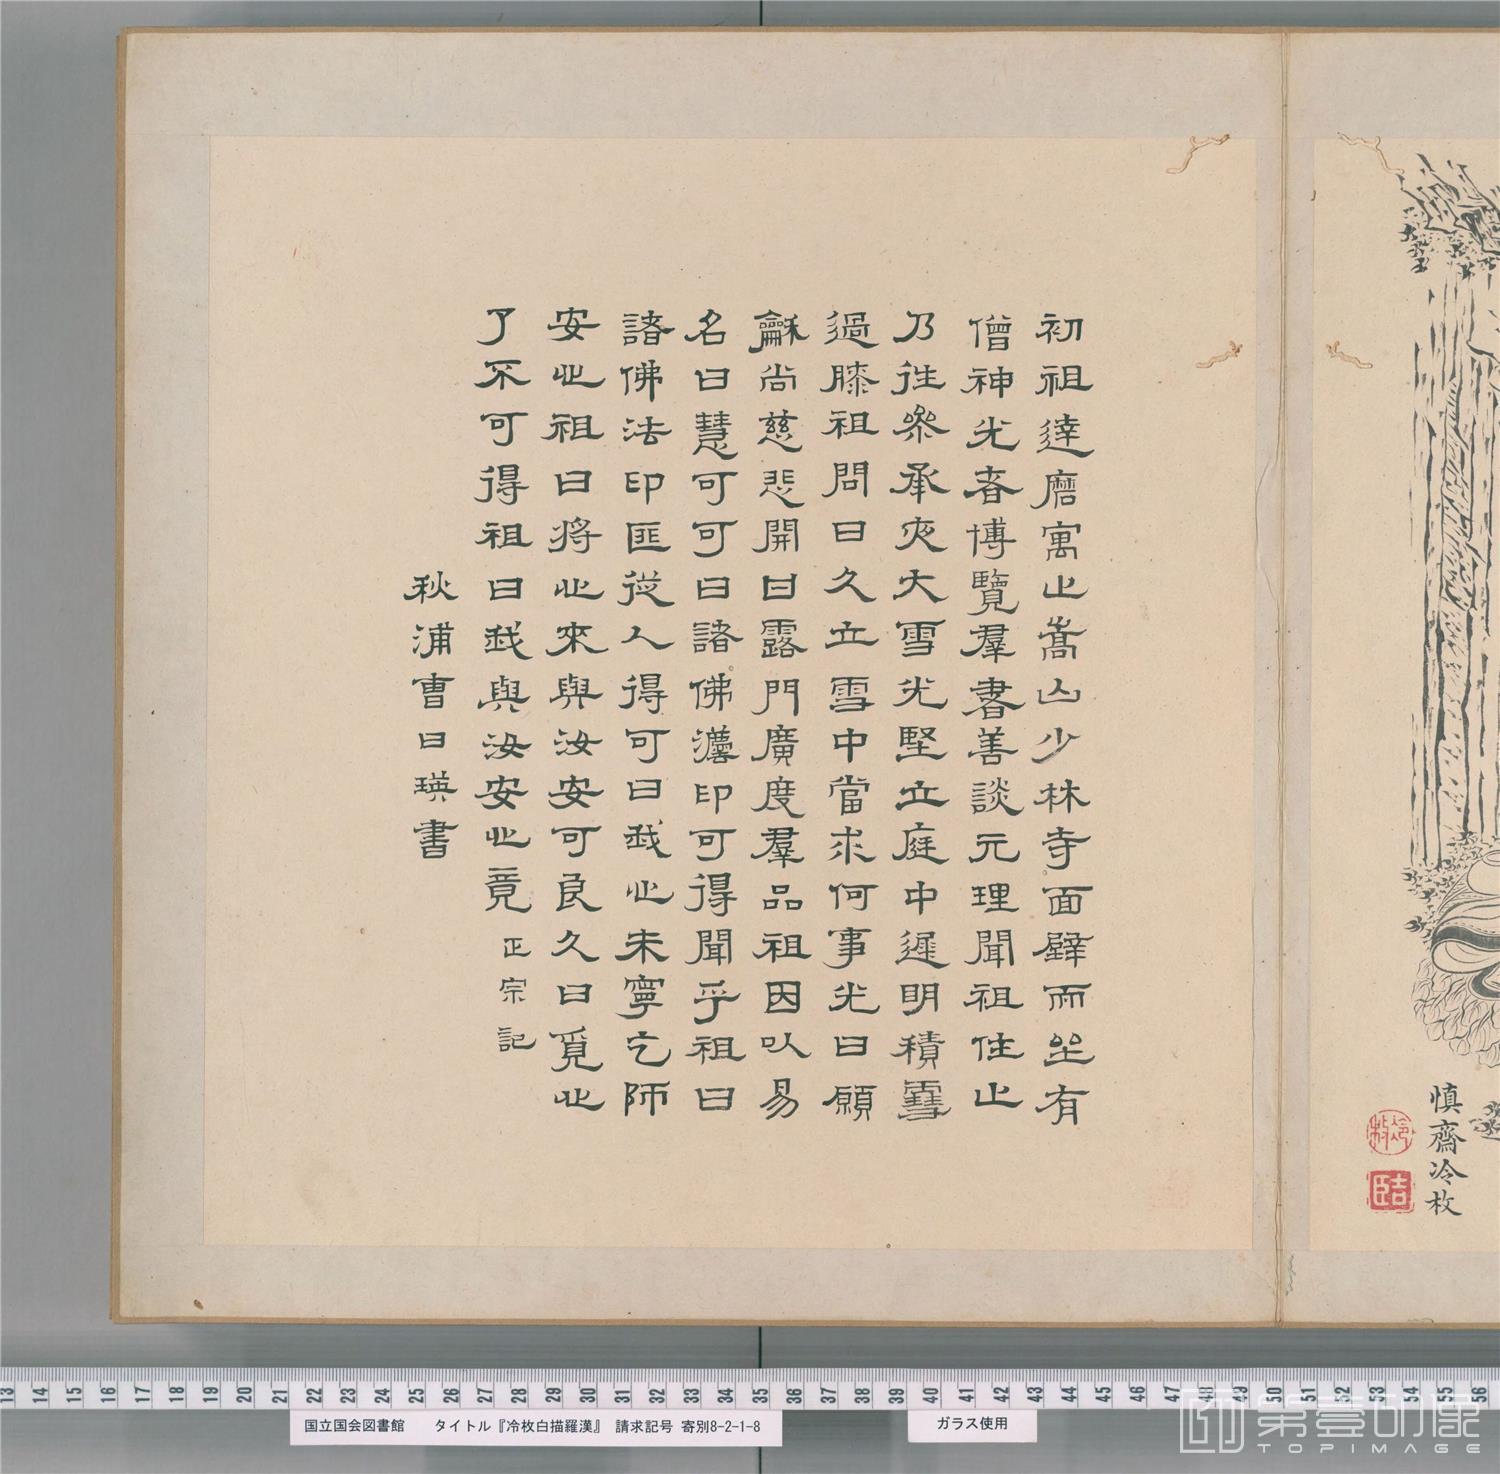 初祖達磨寓止嵩山少林寺面壁而坐有
僧神光者博覽羣書善談元理聞祖住止
乃往參承夾大雪光堅立庭中遲明積雪
過膝祖問曰久立雪中當求何事光曰願
龢尚慈悲開甘露門廣度羣品祖因以易
名曰慧可可曰諸佛灋印可得聞乎祖曰
諸佛法印匪從人得可曰我心未寧乞師
安心祖曰將心來與汝安可良久曰覓心
了不可得祖曰我與汝安心竟 正宗記
秋浦曹日瑛書
慎齋冷枚
冷枚
吉臣
13 14 15 16 17 18 19 20 21 22 23 24 25 26 27 28 29 30 31 32 33 34 35 36 37 38 39 40 41 42 43 44 45 46 47 48 49 50 51 52 53 54 55 56
国立国会図書館 タイトル『冷枚白描羅漢』 請求記号 寄別8-2-1-8
ガラス使用
第壹印像
TOPIMAGE